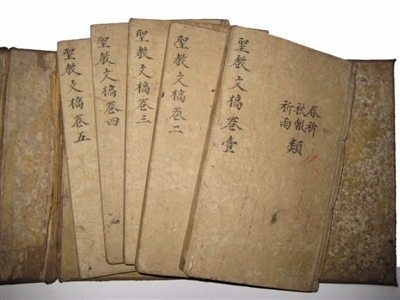 聖教文稿卷壹
春祈
秋報
祈雨
類
聖教文稿卷二
聖教文稿卷三
聖教文稿卷四
聖教文稿卷五